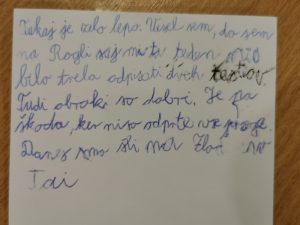 Tukaj je zelo lepo. Vesel sem, da sem
na Rogli saj mi ta teden ni
bilo treba odpisati dveh testov.
Tudi obroki so dobri. Je pa
škoda, ker niso odprte vse proge.
Danes smo šli na Zlodejevo
Tai